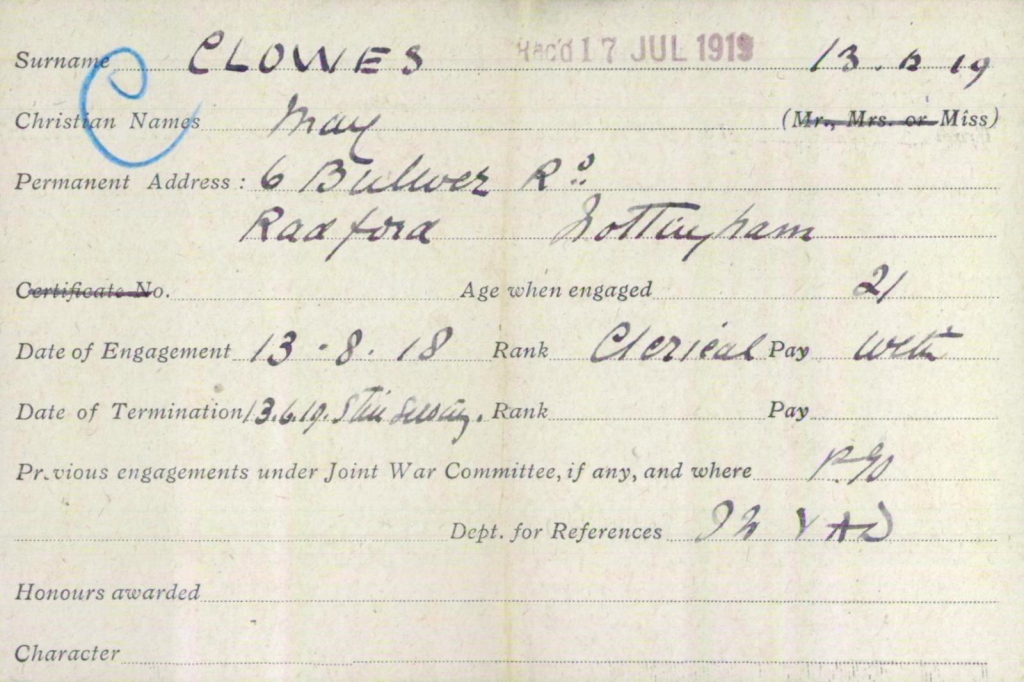 Surname CLOWES Rec'd 17 JUL 1919 13.6.19
C
Christian Names May (Mr., Mrs. or Miss)
Permanent Address: 6 Bulwer Rd.
Radford Nottingham
Certificate No. Age when engaged 21
Date of Engagement 13.8.18 Rank Clerical Pay
Date of Termination 13.6.19. Still Serving. Rank Pay
Previous engagements under Joint War Committee, if any, and where
Dept. for References VAD
Honours awarded
Character